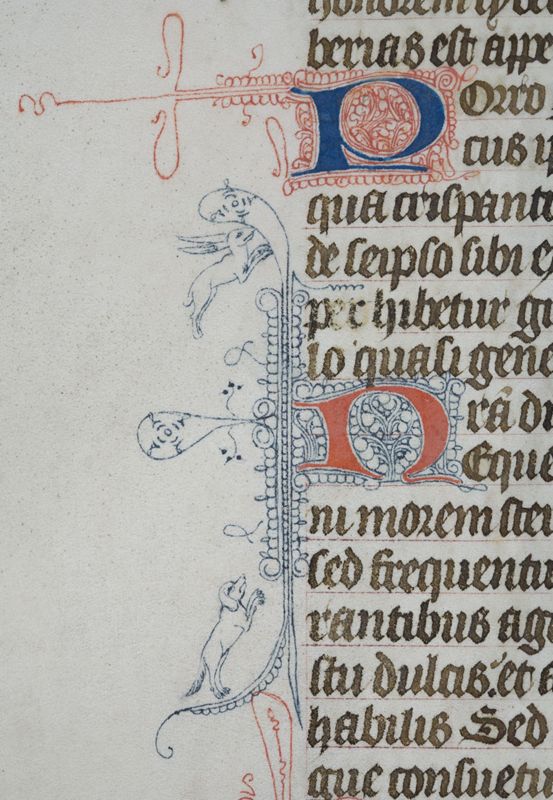 honorem
berias est appe
Porro
cus ip
qua crispante
de seipso sibi e
perhibetur ge
lo quasi gene
rā di
Eque
ni morem
sed frequentiu
rantibus ag
stu dulcis. et a
habilis Sed
que consuetu